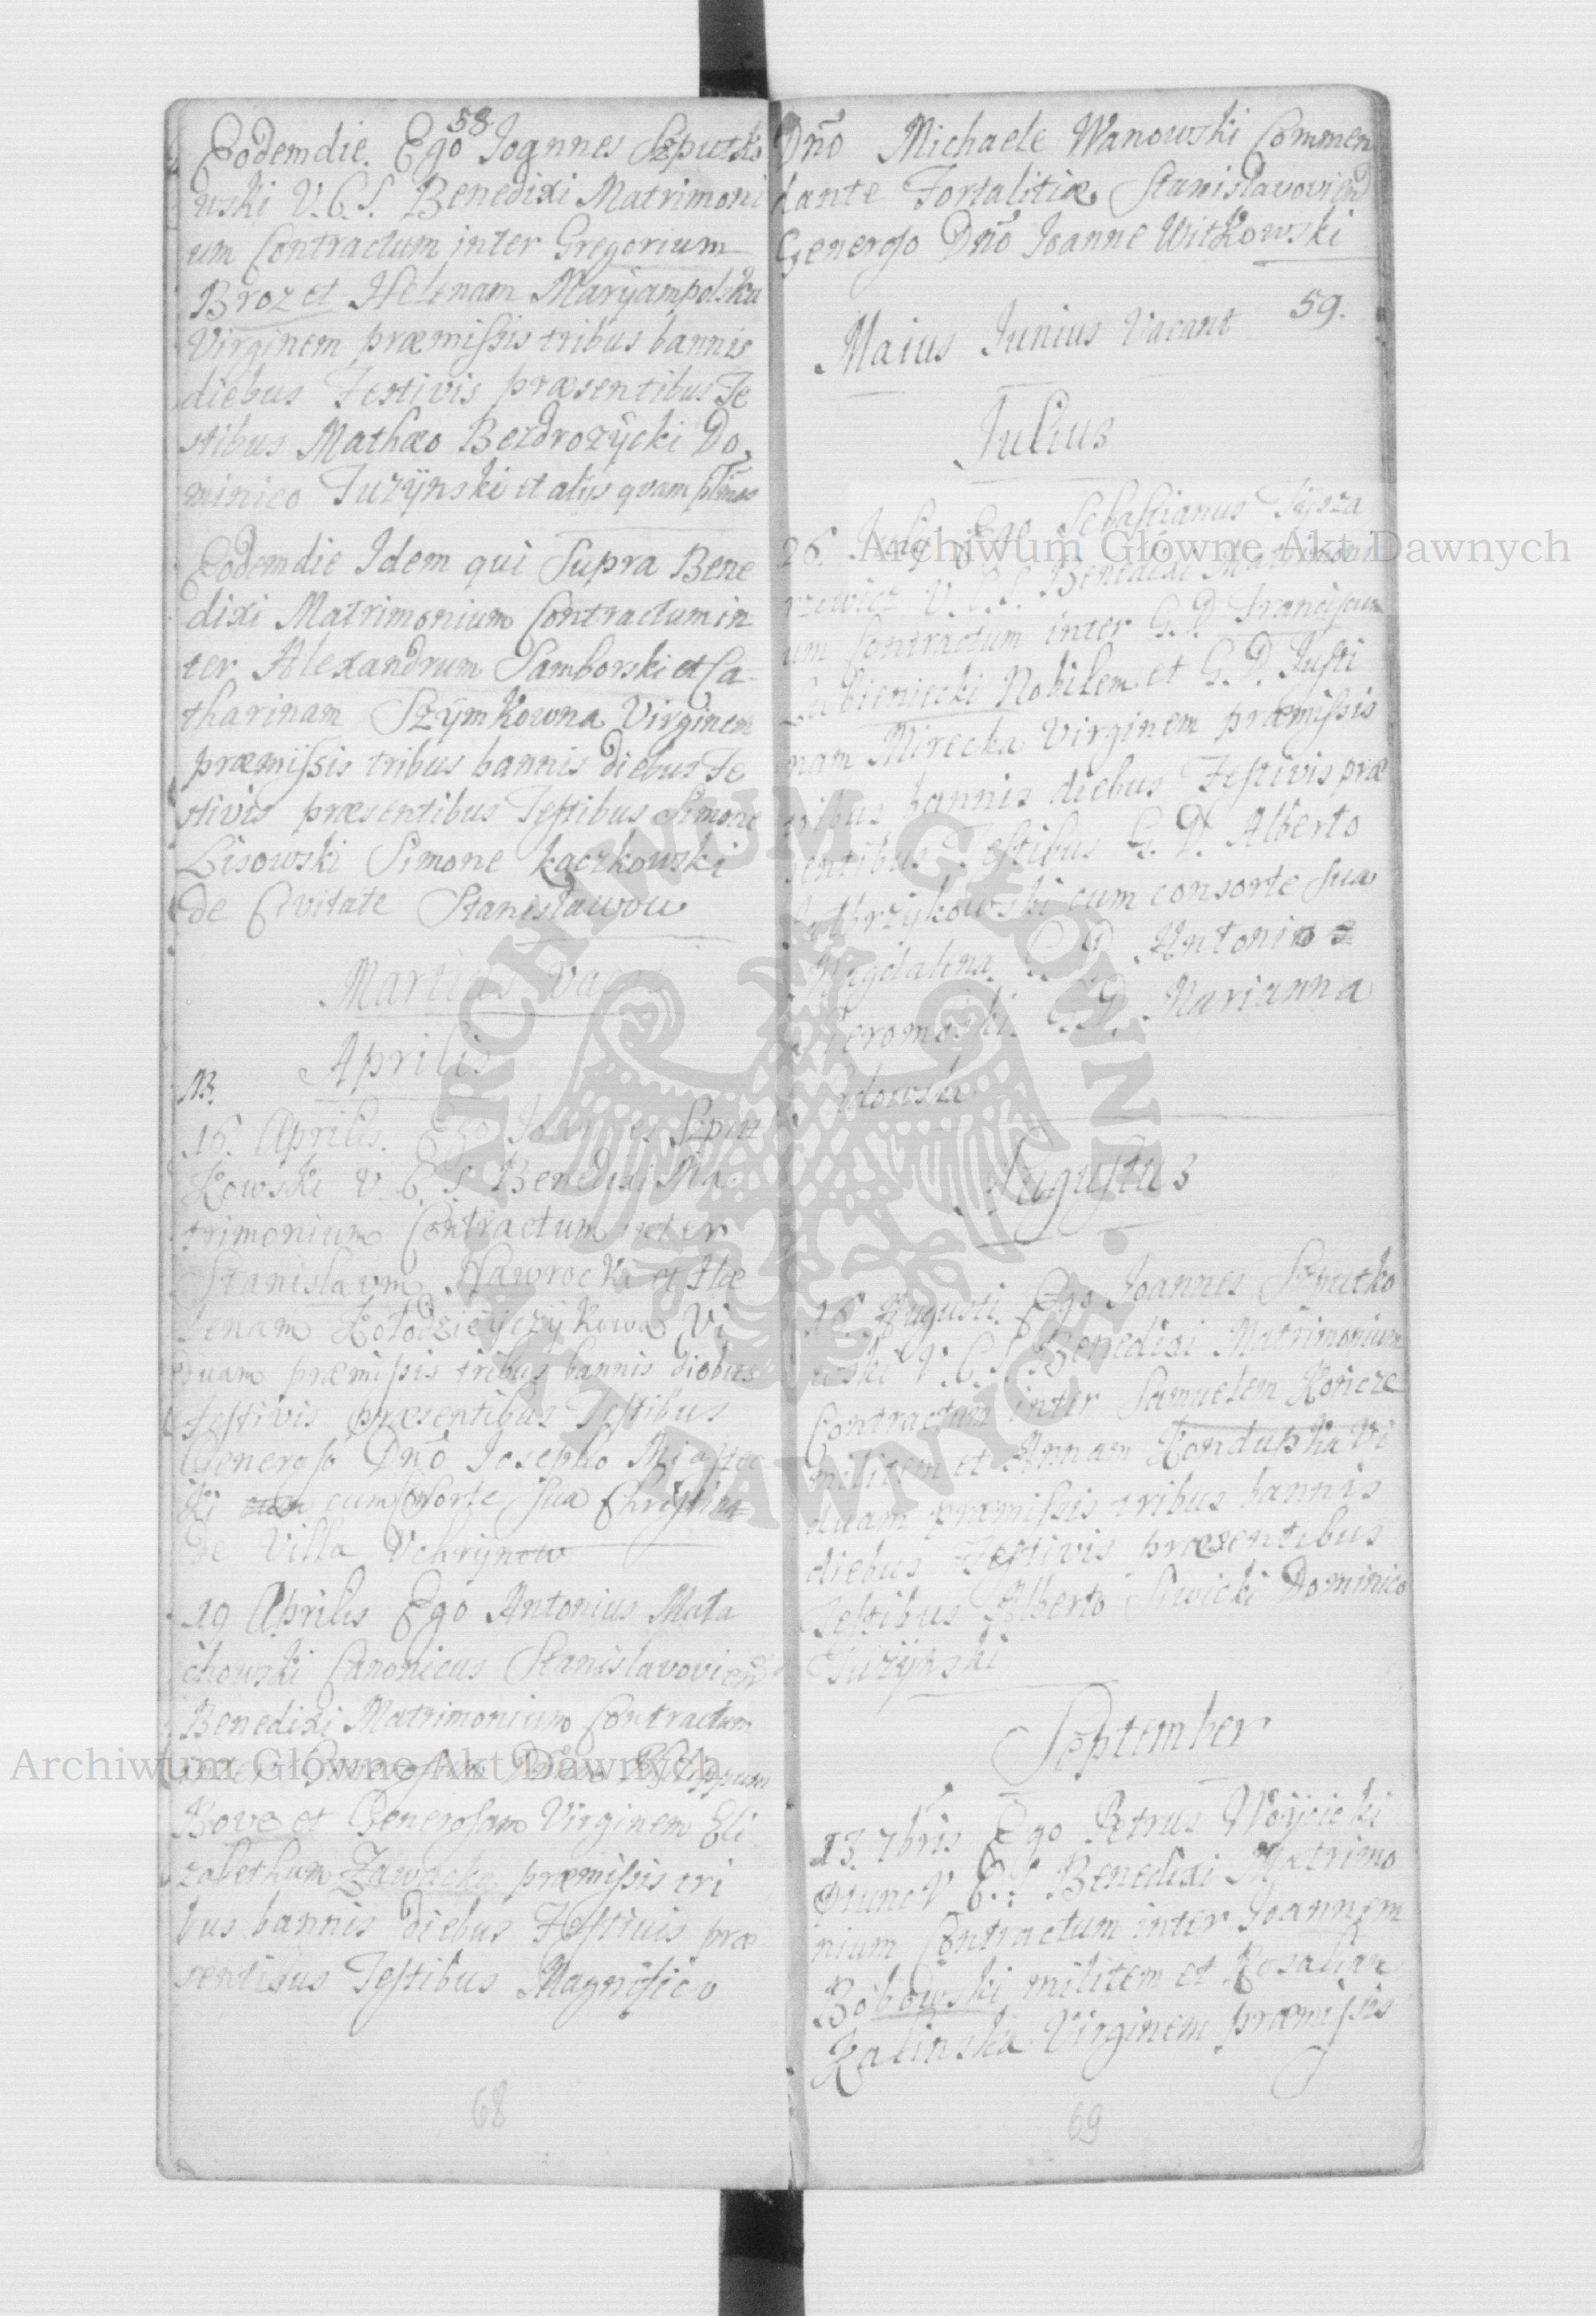 58
Eodem die. Ego Joannes Szputko
wski V.C.S. Benedixi Matrimoni
um Contractum inter Gregorium
Broz et Helenam Maryampolska
Virginem præmissis tribus bannis
diebus Festivis præsentibus Te
stibus Mathæo Bezdrozÿcki Do
minico Tuzÿnski et alijs quam
Eodem die Idem qui Supra Bene
dixi Matrimonium Contractum in
ter Alexandrum Samborski et Ca-
tharinam Szÿmkowna Virginem
præmissis tribus bannis diebus Fe
stivis præsentibus Testibus Simone
Lisowski Simone Łaczkowski
de Civitate Stanisławow
Martius
Aprilis
16. Aprilis. Ego Joannes Szput
kowski V.C.S. Benedixi Ma
trimonium Contractum inter
Stanislaum Nawrocki et He
lenam Kołodzieyczÿkowa Vi
duam præmissis tribus bannis diebus
Festivis præsentibus Testibus
Generoso Dño Josepho
ki cum Consorte Sua Christina
de Villa Uchrÿnow
19 Aprilis Ego Antonius Mała
chowski Canonicus Stanislavovien
Benedixi Matrimonium Contractum
inter Philippum
Bove et Generosam Virginem Eli
zabetham Zawacka præmissis tri
bus bannis diebus Festivis præ
sentibus Testibus Magnifico
68
Dño Michaele Wanowski Commen
dante Fortalitiæ Stanislavovien
Generoso Dño Joanne Witkowski
59.
Maius Junius Vacant
Julius
26. Ego Sebastianus Tÿsza
rzewicz V.C.S. Benedixi Matrimoni
um Contractum inter G.D. Franciscum
Lubieniecki Nobilem et G.D. Justi
nam Mirecka Virginem præmissis
tribus bannis diebus Festivis præ
sentibus Testibus G.D. Alberto
cum consorte Sua
Magdalena G.D. Antonio
G.D. Marianna
Augustus
16 Augusti Ego Joannes Szputko
wski V.C.S. Benedixi Matrimonium
Contractum inter Samuelem Koncze
militem et Annam Vi
duam præmissis tribus bannis
diebus Festivis præsentibus
Testibus Alberto Siwicki Dominico
Tuzÿnski
September
13. 7bris Ego Petrus Woÿcicki
V.C.S. Benedixi Matrimo
nium Contractum inter Joannem
Bobowski militem et Rosaliam
Kalinska Virginem præmissis
69
Archiwum Główne Akt Dawnych
Archiwum Główne Akt Dawnych
ARCHIWUM GŁÓWNE AKT DAWNYCH